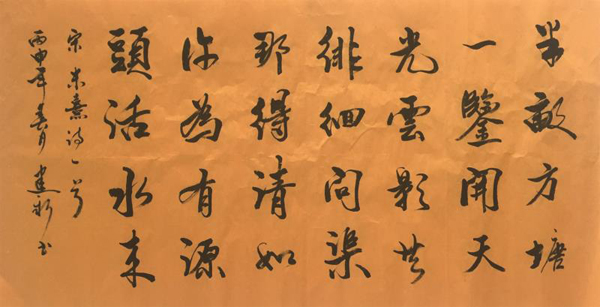 半畝方塘
一鑒開天
光雲影共
徘徊問渠
那得清如
许為有源
頭活水来
宋朱熹诗一首
丙申年春月建新书